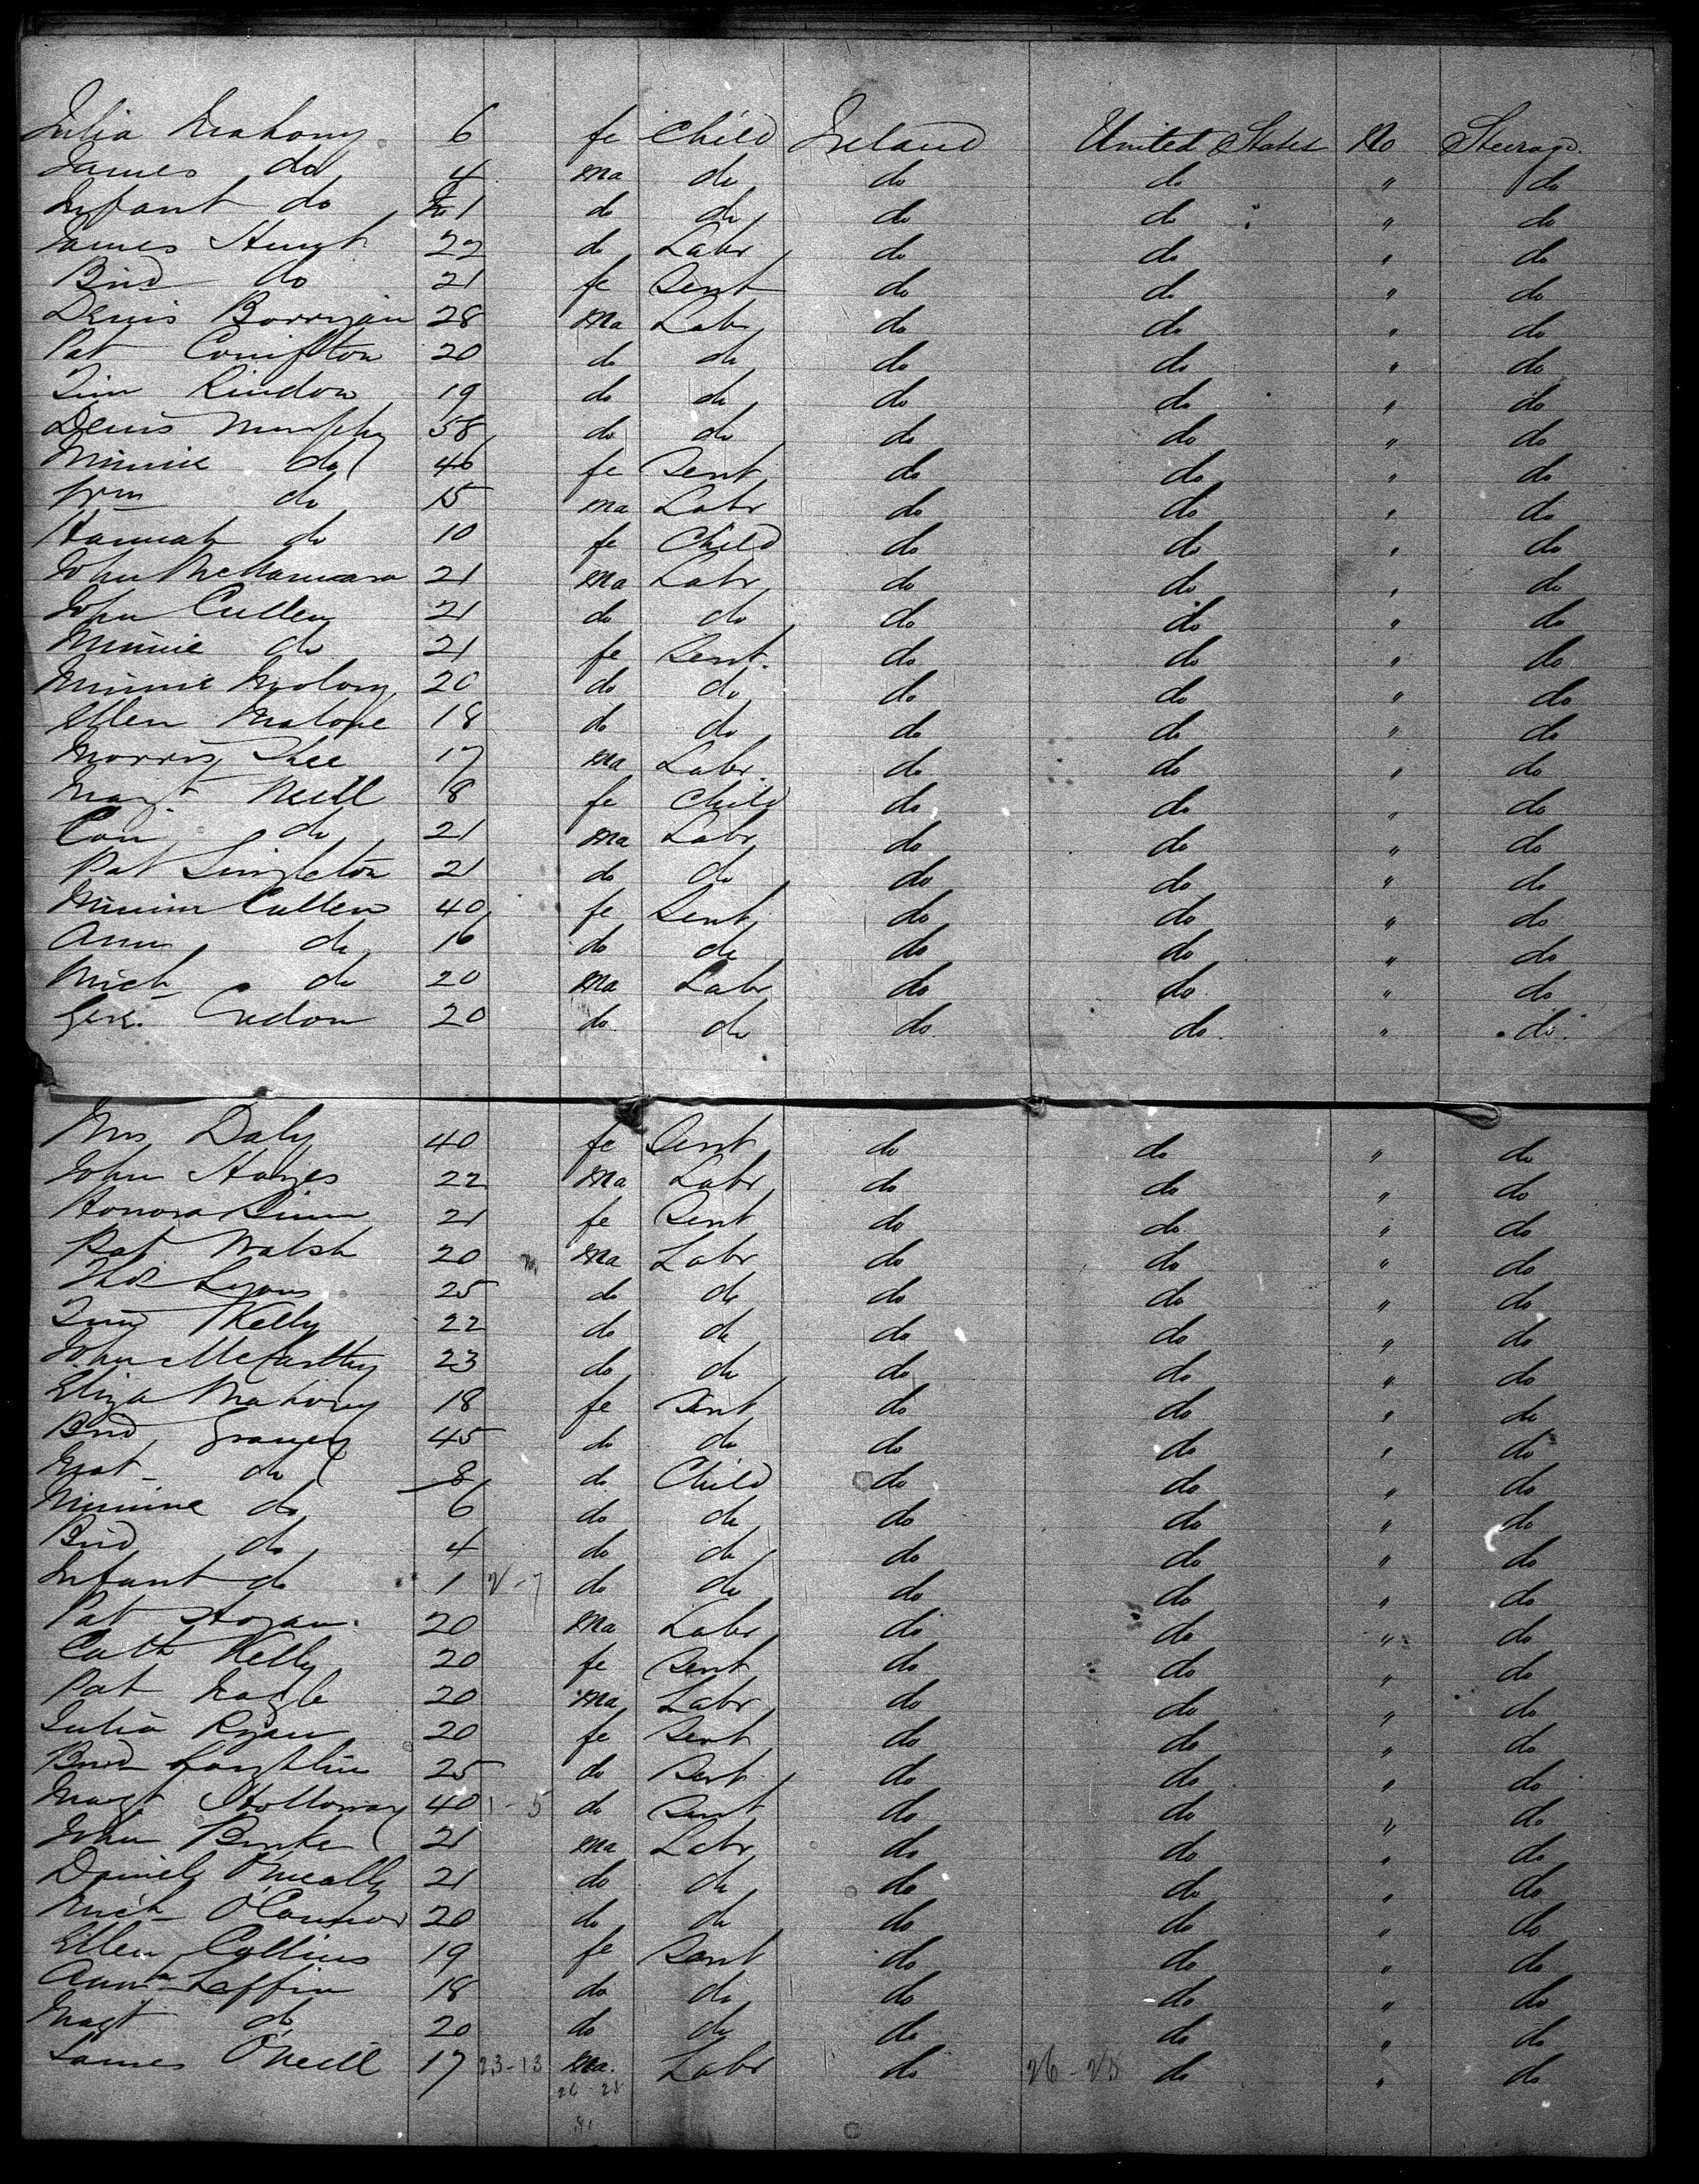 Julia Mahony 6 fe Child Ireland United States No Steerage
James do 4 ma do do do " do
Infant do 1 do do do do " do
James 22 do Labr do do " do
Brid do 21 fe Sent do do " do
Denis Borrigan 28 ma Labr do do " do
Pat 20 do do do do " do
Tim Rindon 19 do do do do " do
Denis Murphy 58 do do do do " do
Minnie do 46 fe Sent do do " do
Wm do 15 ma Labr do do " do
Hannah do 10 fe Child do do " do
John McNamara 21 ma Labr do do " do
John Cullen 21 do do do do " do
Minnie do 21 fe Sent. do do " do
Minnie Molony 20 do do do do " do
Ellen Malone 18 do do do do " do
Morris Shee 17 ma Labr do do " do
Margt Neill 8 fe Child do do " do
Con do 21 ma Labr do do " do
Pat Singleton 21 do do do do " do
Minnie Cullen 40 fe Sent do do " do
Ann do 16 do do do do " do
Mich do 20 ma Labr do do " do
Credon 20 do do do do " do
Mrs Daly 40 fe Sent do do " do
John Hayes 22 ma Labr do do " do
Honora 21 fe Sent do do " do
Pat Walsh 20 ma Labr do do " do
Thos Lyons 25 do do do do " do
Tim Kelly 22 do do do do " do
John McCarthy 23 do do do do " do
Eliza Mahony 18 fe Sent do do " do
Brid Graney 45 do do do do " do
Mat do 8 do Child do do " do
Minnie do 6 do do do do " do
Brid do 4 do do do do " do
Infant do 1 2-7 do do do do " do
Pat Hogan 20 ma Labr do do " do
Cath Kelly 20 fe Sent do do " do
Pat Nagle 20 ma Labr do do " do
Julia Ryan 20 fe Sent do do " do
Brid Loughlin 25 do Sent do do " do
Margt Holloway 40 1-5 do Sent do do " do
John Burke 21 ma Labr do do " do
Daniel O'Neally 21 do do do do " do
Mich O'Connor 20 do do do do " do
Ellen Collins 19 fe Sent do do " do
Leffin 18 do do do do " do
Magt do 20 do do do do " do
James O'Neill 17 23-13 ma. Labr do 26-25 do " do
26 25